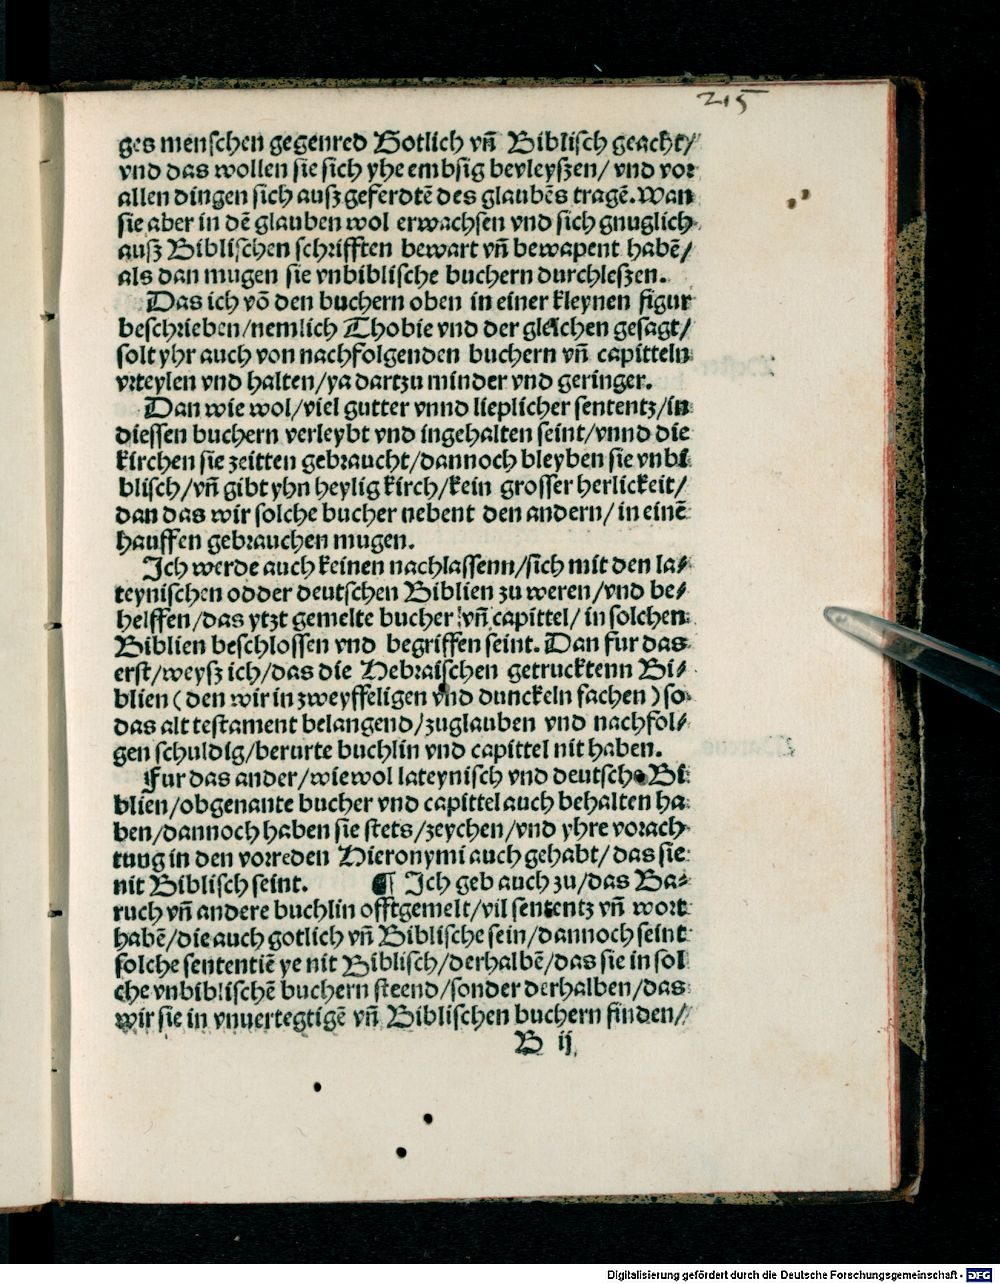 215
ges menschen gegenred Gotlich vn̄ Biblisch geacht/
vnd das wollen sie sich yhe embsig bevleyszen/ vnd vor
allen dingen sich ausz geferdtē des glaubēs tragē. Wan
sie aber in dē glauben wol erwachsen vnd sich gnuglich
ausz Biblischen schrifften bewart vn̄ bewapent habē/
als dan mugen sie vnbiblische buchern durchleszen.
Das ich vō den buchern oben in einer kleynen figur
beschrieben/nemlich Thobie vnd der gleichen gesagt/
solt yhr auch von nachfolgenden buchern vn̄ capitteln
vrteylen vnd halten/ya dartzu minder vnd geringer.
Dan wie wol/viel gutter vnnd lieplicher sententz/in
diessen buchern verleybt vnd ingehalten seint/vnnd die
kirchen sie zeitten gebraucht/dannoch bleyben sie vnbi
blisch/vn̄ gibt yhn heylig kirch/kein grosser herlickeit/
dan das wir solche bucher nebent den andern/ in einē
hauffen gebrauchen mugen.
Ich werde auch keinen nachlassenn/sich mit den la⸗
teynischen odder deutschen Biblien zu weren/vnd be⸗
helffen/das ytzt gemelte bucher vn̄ capittel/ in solchen
Biblien beschlossen vnd begriffen seint. Dan fur das
erst/weysz ich/das die Hebraischen getrucktenn Bi⸗
blien (den wir in zweyffeligen vnd dunckeln sachen) so
das alt testament belangend/zuglauben vnd nachfol⸗
gen schuldig/berurte buchlin vnd capittel nit haben.
Fur das ander/wiewol lateynisch vnd deutsche Bi
blien/obgenante bucher vnd capittel auch behalten ha
ben/dannoch haben sie stets/zeychen/vnd yhre vorach
tung in den vorreden Hieronymi auch gehabt/das sie
nit Biblisch seint. ¶ Ich geb auch zu/das Ba⸗
ruch vn̄ andere buchlin offtgemelt/vil sententz vn̄ wort
habē/die auch gotlich vn̄ Biblische sein/dannoch seint
solche sententiē ye nit Biblisch/derhalbē/das sie in sol
che vnbiblischē buchern steend/sonder derhalben/das
wir sie in vnuertegtigē vn̄ Biblischen buchern finden/
B ij
Digitalisierung gefördert durch die Deutsche Forschungsgemeinschaft - DFG